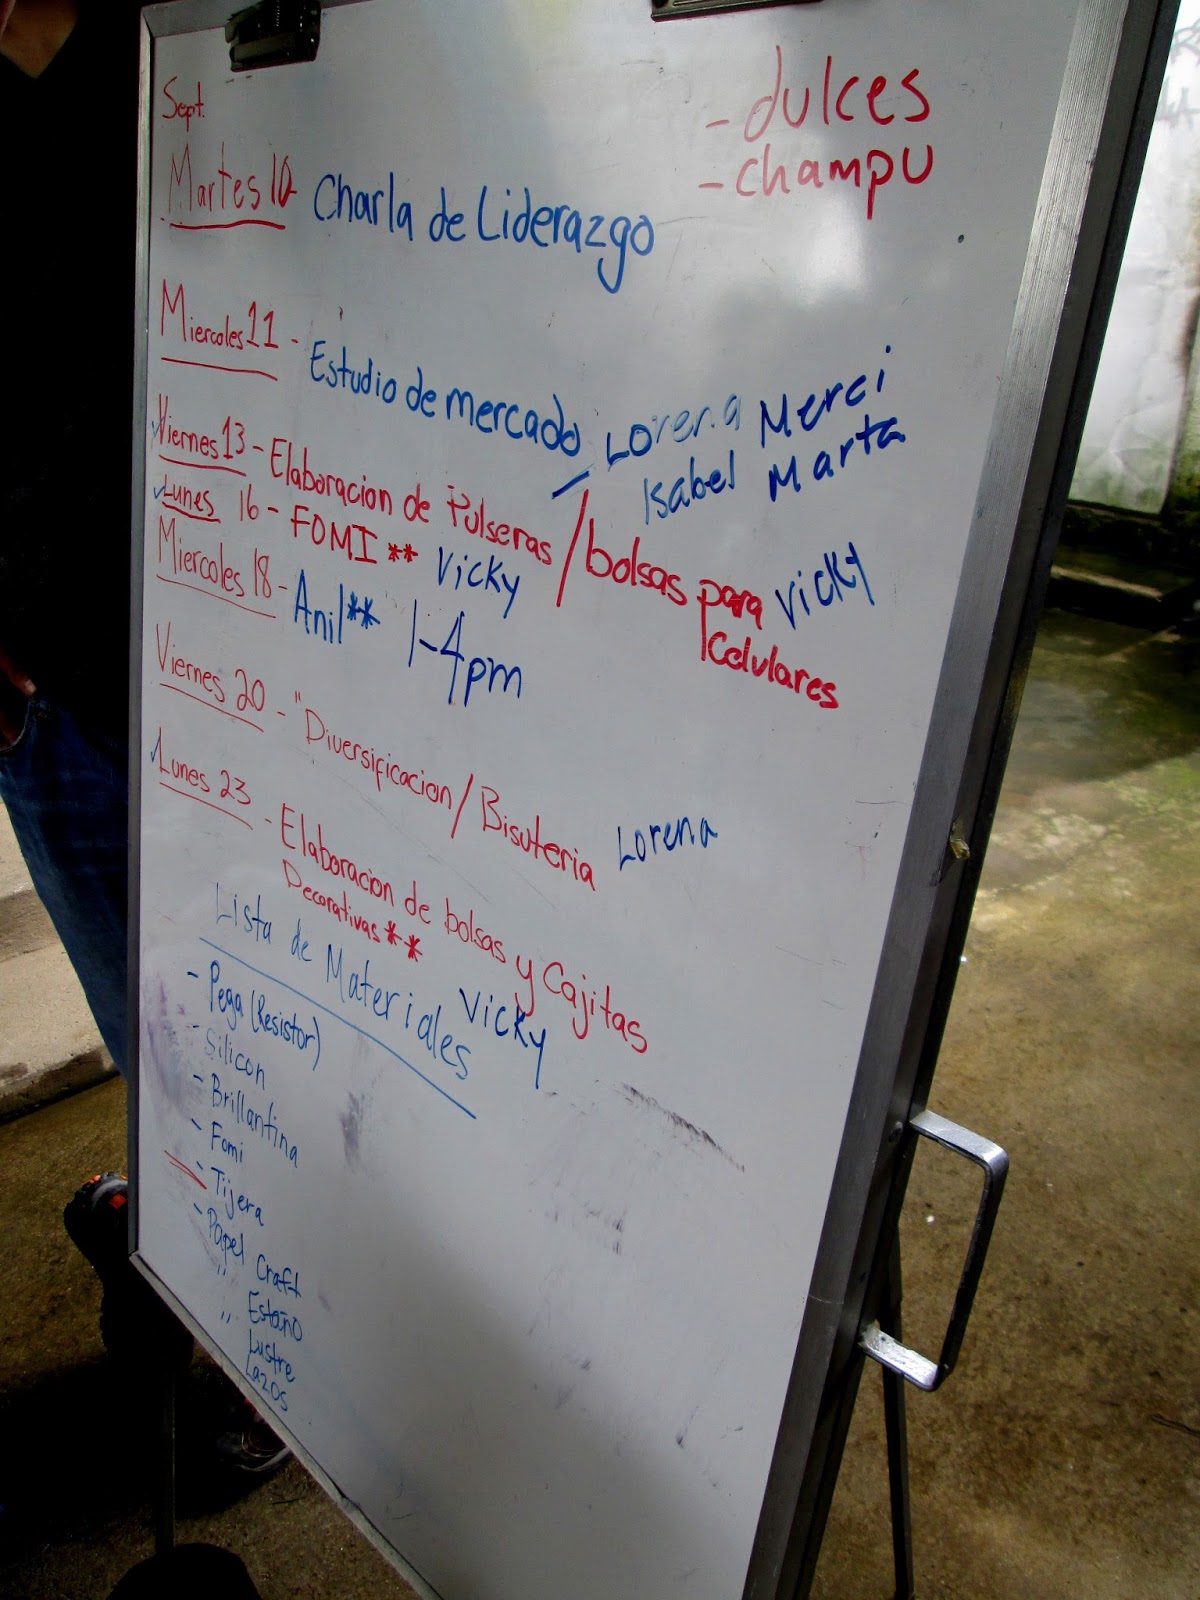 Sept.
- dulces
- champu
Martes 10 Charla de Liderazgo
Miercoles 11 - Estudio de mercado / Lorena Merci
Isabel Marta
Viernes 13 - Elaboracion de Pulseras / bolsas para Vicky
Celulares
Lunes 16 - FOMI ** Vicky
Miercoles 18 - Anil ** 1-4pm
Viernes 20 - "Diversificacion / Bisuteria Lorena
Lunes 23 - Elaboracion de bolsas y Cajitas
Decorativas ** Vicky
Lista de Materiales
- Pega (Resistor)
- Silicon
- Brillantina
- Fomi
- Tijera
- Papel Craft
" Estaño
" Lustre
Lazos